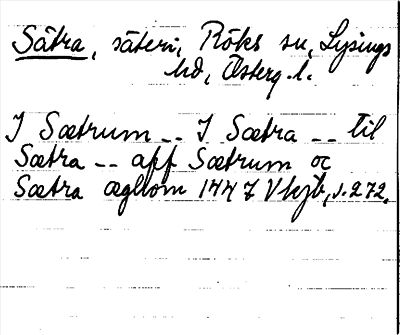 Sätra, säteri, Röks sn, Lysings
hd, Österg. l.
J Sætrum -- J Sætra -- til
Sætra -- aff Sætrum oc
Sætra æghom 1447 Vkjb, s. 272.